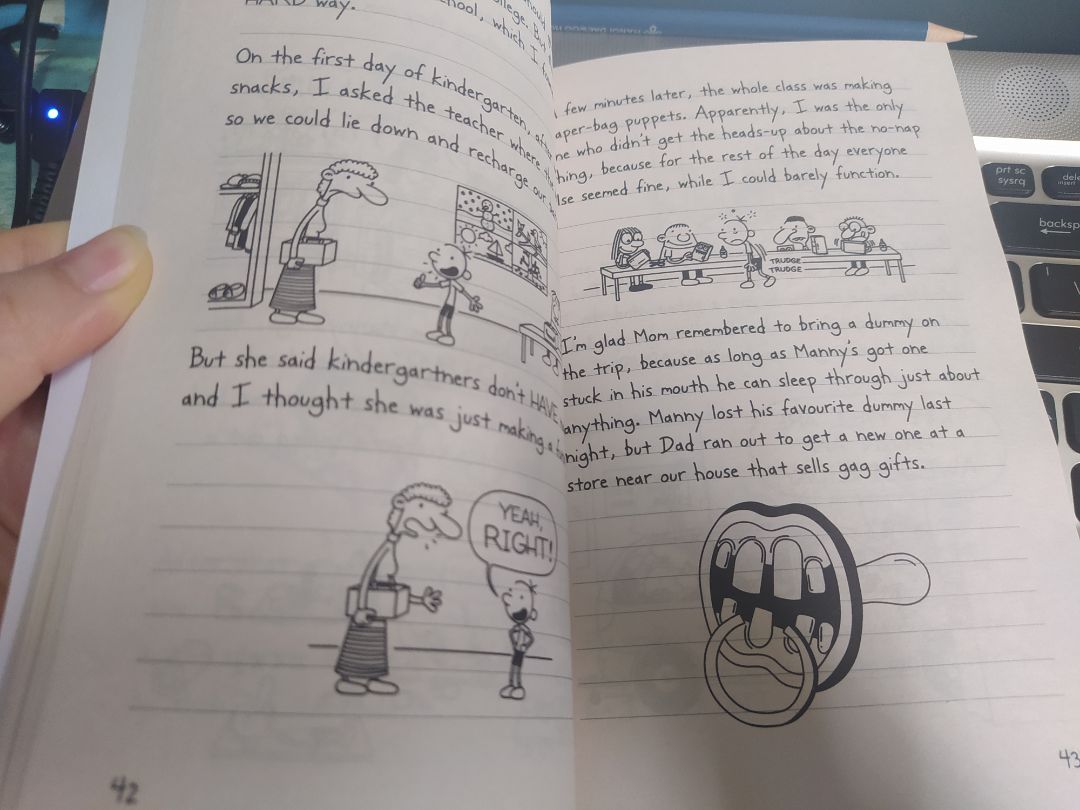 HARD way.
school, which I
college. But
On the first day of kindergarten,
snacks, I asked the teacher where
so we could lie down and recharge our
But she said kindergartners don't HAVE
and I thought she was just making a
YEAH,
RIGHT!
42
few minutes later, the whole class was making
aper-bag puppets. Apparently, I was the only
ne who didn't get the heads-up about the no-nap
hing, because for the rest of the day everyone
lse seemed fine, while I could barely function.
TRUDGE
TRUDGE
I'm glad Mom remembered to bring a dummy on
the trip, because as long as Manny's got one
stuck in his mouth he can sleep through just about
anything. Manny lost his favourite dummy last
night, but Dad ran out to get a new one at a
store near our house that sells gag gifts.
43
prt sc
sysrq
dele
insert
backsp